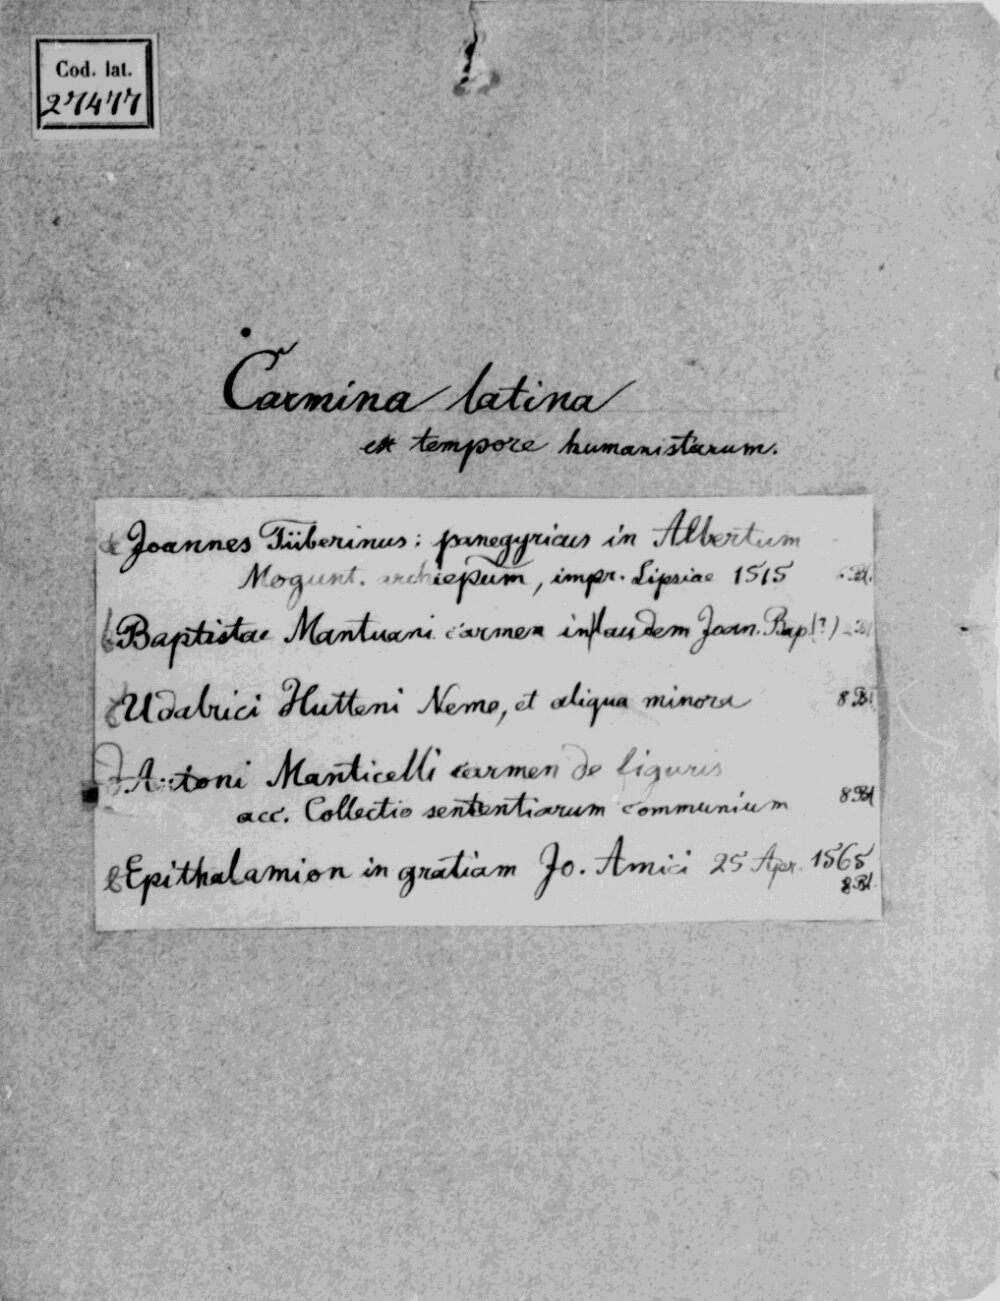 Cod. lat.
27477
Carmina latina
ex tempore humanistarum.
a Joannes Tüberinus: panegyricus in Albertum
Mogunt. archiepum, impr. Lipsiae 1515 6 Bl.
b Baptistae Mantuani carmen in laudem Joan. Bap(?) 2 Bl
c Udalrici Hutteni Nemo, et aliqua minora 8 Bl
d Antoni Manticelli carmen de figuris
acc. Collectio sententiarum communium 8 Bl
e Epithalamion in gratiam Jo. Amici 25 Apr. 1565
8 Bl.